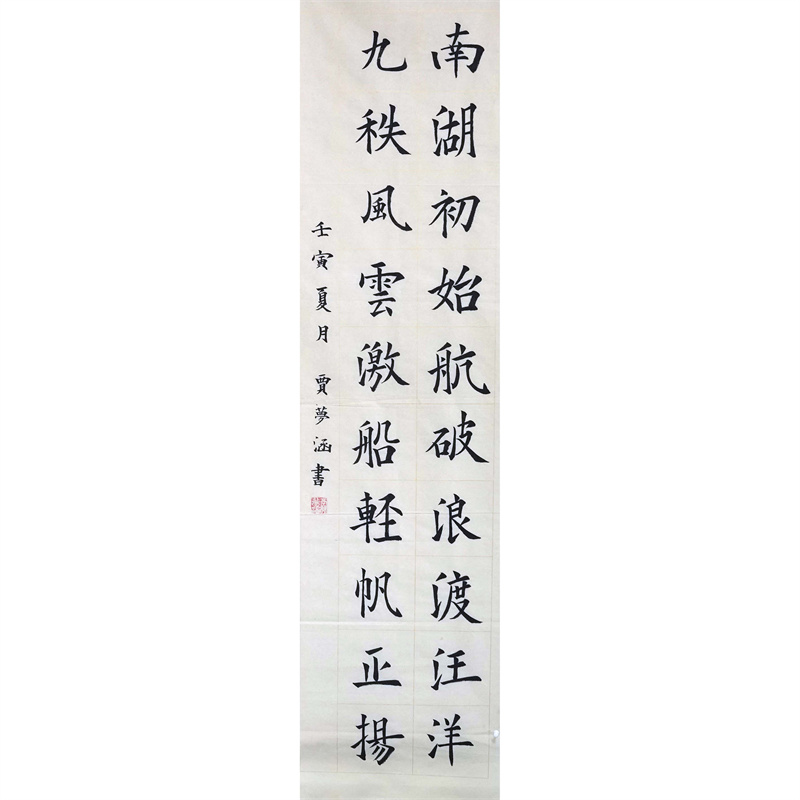 南湖初始航破浪渡汪洋
九秩風雲激船軽帆正揚
壬寅夏月 賈夢涵書